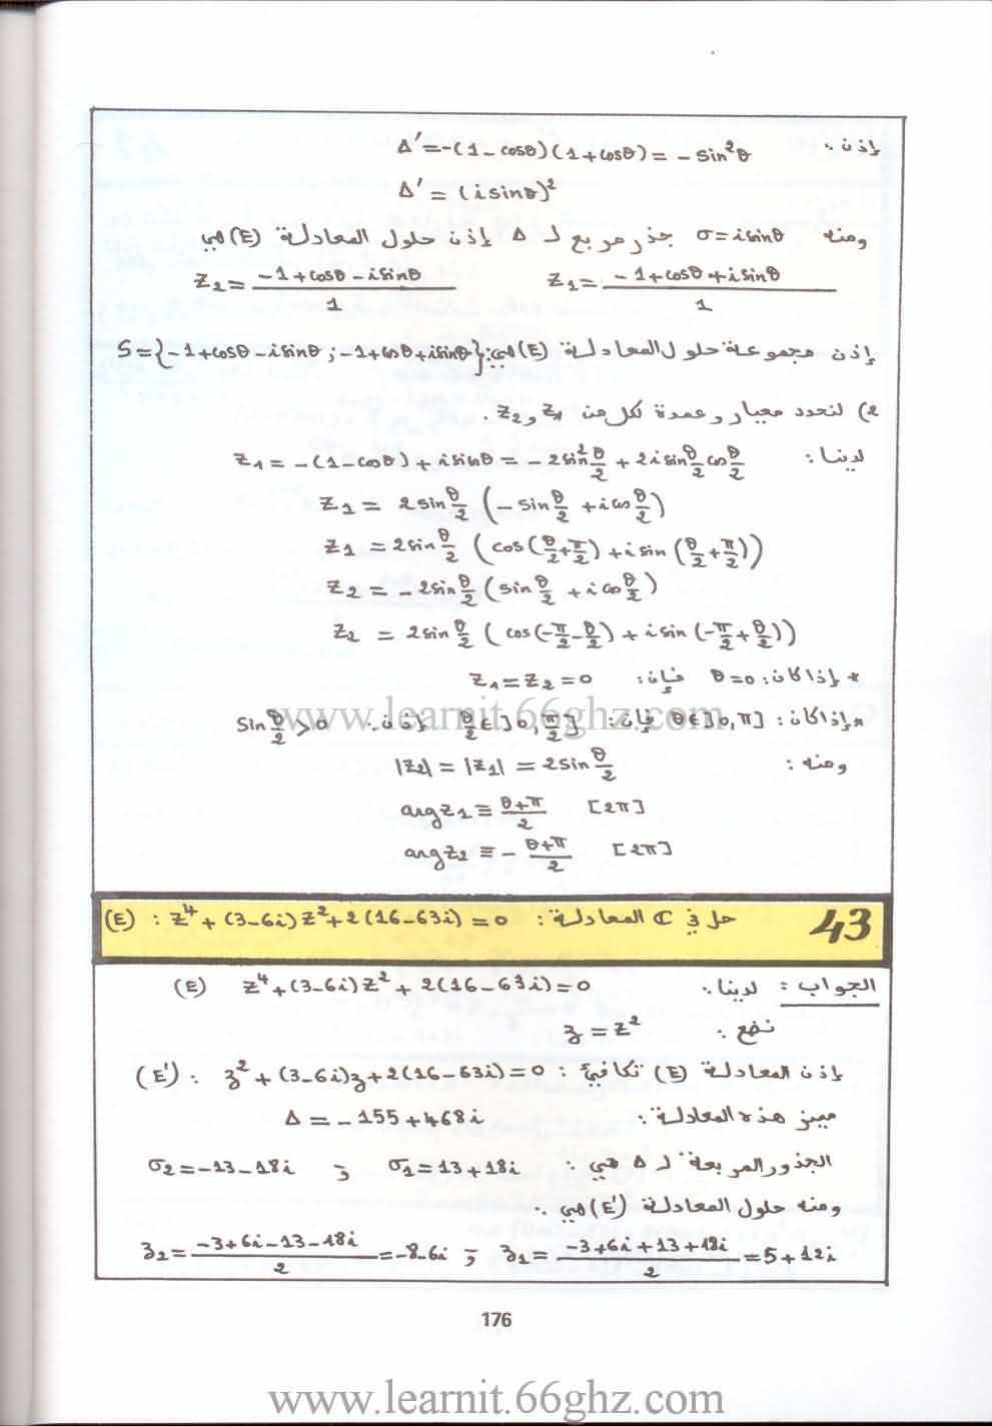 إذن : Δ'=-(1-cosθ)(1+cosθ)= -sin²θ
Δ' = (isinθ)²
ومنه σ=isinθ جذر مربع لـ Δ إذن حلول المعادلة (E) هي
z₁= (-1+cosθ+isinθ)/1 z₂= (-1+cosθ-isinθ)/1
إذن مجموعة حلول المعادلة (E) هي: S={-1+cosθ-isinθ ; -1+cosθ+isinθ}
2) لنحدد معيار وعمدة لكل من z₁ و z₂ .
لدينا : z₁= -(1-cosθ)+isinθ = -2sin²θ/2 + 2isinθ/2 cosθ/2
z₁ = 2sinθ/2 (-sinθ/2 +icosθ/2)
z₁ = 2sinθ/2 (cos(θ/2+π/2)+isin(θ/2+π/2))
z₂ = -2sinθ/2 (sinθ/2 +icosθ/2)
z₂ = 2sinθ/2 (cos(-π/2-θ/2)+isin(-π/2+θ/2))
* إذا كان : θ=0 فإن : z₁=z₂=0
* إذا كان : θ∈]0,π] فإن : θ/2∈]0,π/2] إذن : sinθ/2>0
ومنه : |z₂|=|z₁|=2sinθ/2
argz₁ ≡ (θ+π)/2 [2π]
argz₂ ≡ -(θ+π)/2 [2π]
43 حل في ℂ المعادلة : (E) : z⁴+(3-6i)z²+2(16-63i)=0
الجواب : لدينا : (E) z⁴+(3-6i)z²+2(16-63i)=0
نضع : ʒ=z²
إذن المعادلة (E) تكافئ : (E') : ʒ²+(3-6i)ʒ+2(16-63i)=0
مميز هذه المعادلة : Δ=-155+468i
الجذور المربعة لـ Δ هي : σ₁=13+18i و σ₂=-13-18i
ومنه حلول المعادلة (E') هي :
ʒ₁= (-3+6i+13+18i)/2 =5+12i و ʒ₂= (-3+6i-13-18i)/2 =-8-6i
176
www.learnit.66ghz.com
www.learnit.66ghz.com